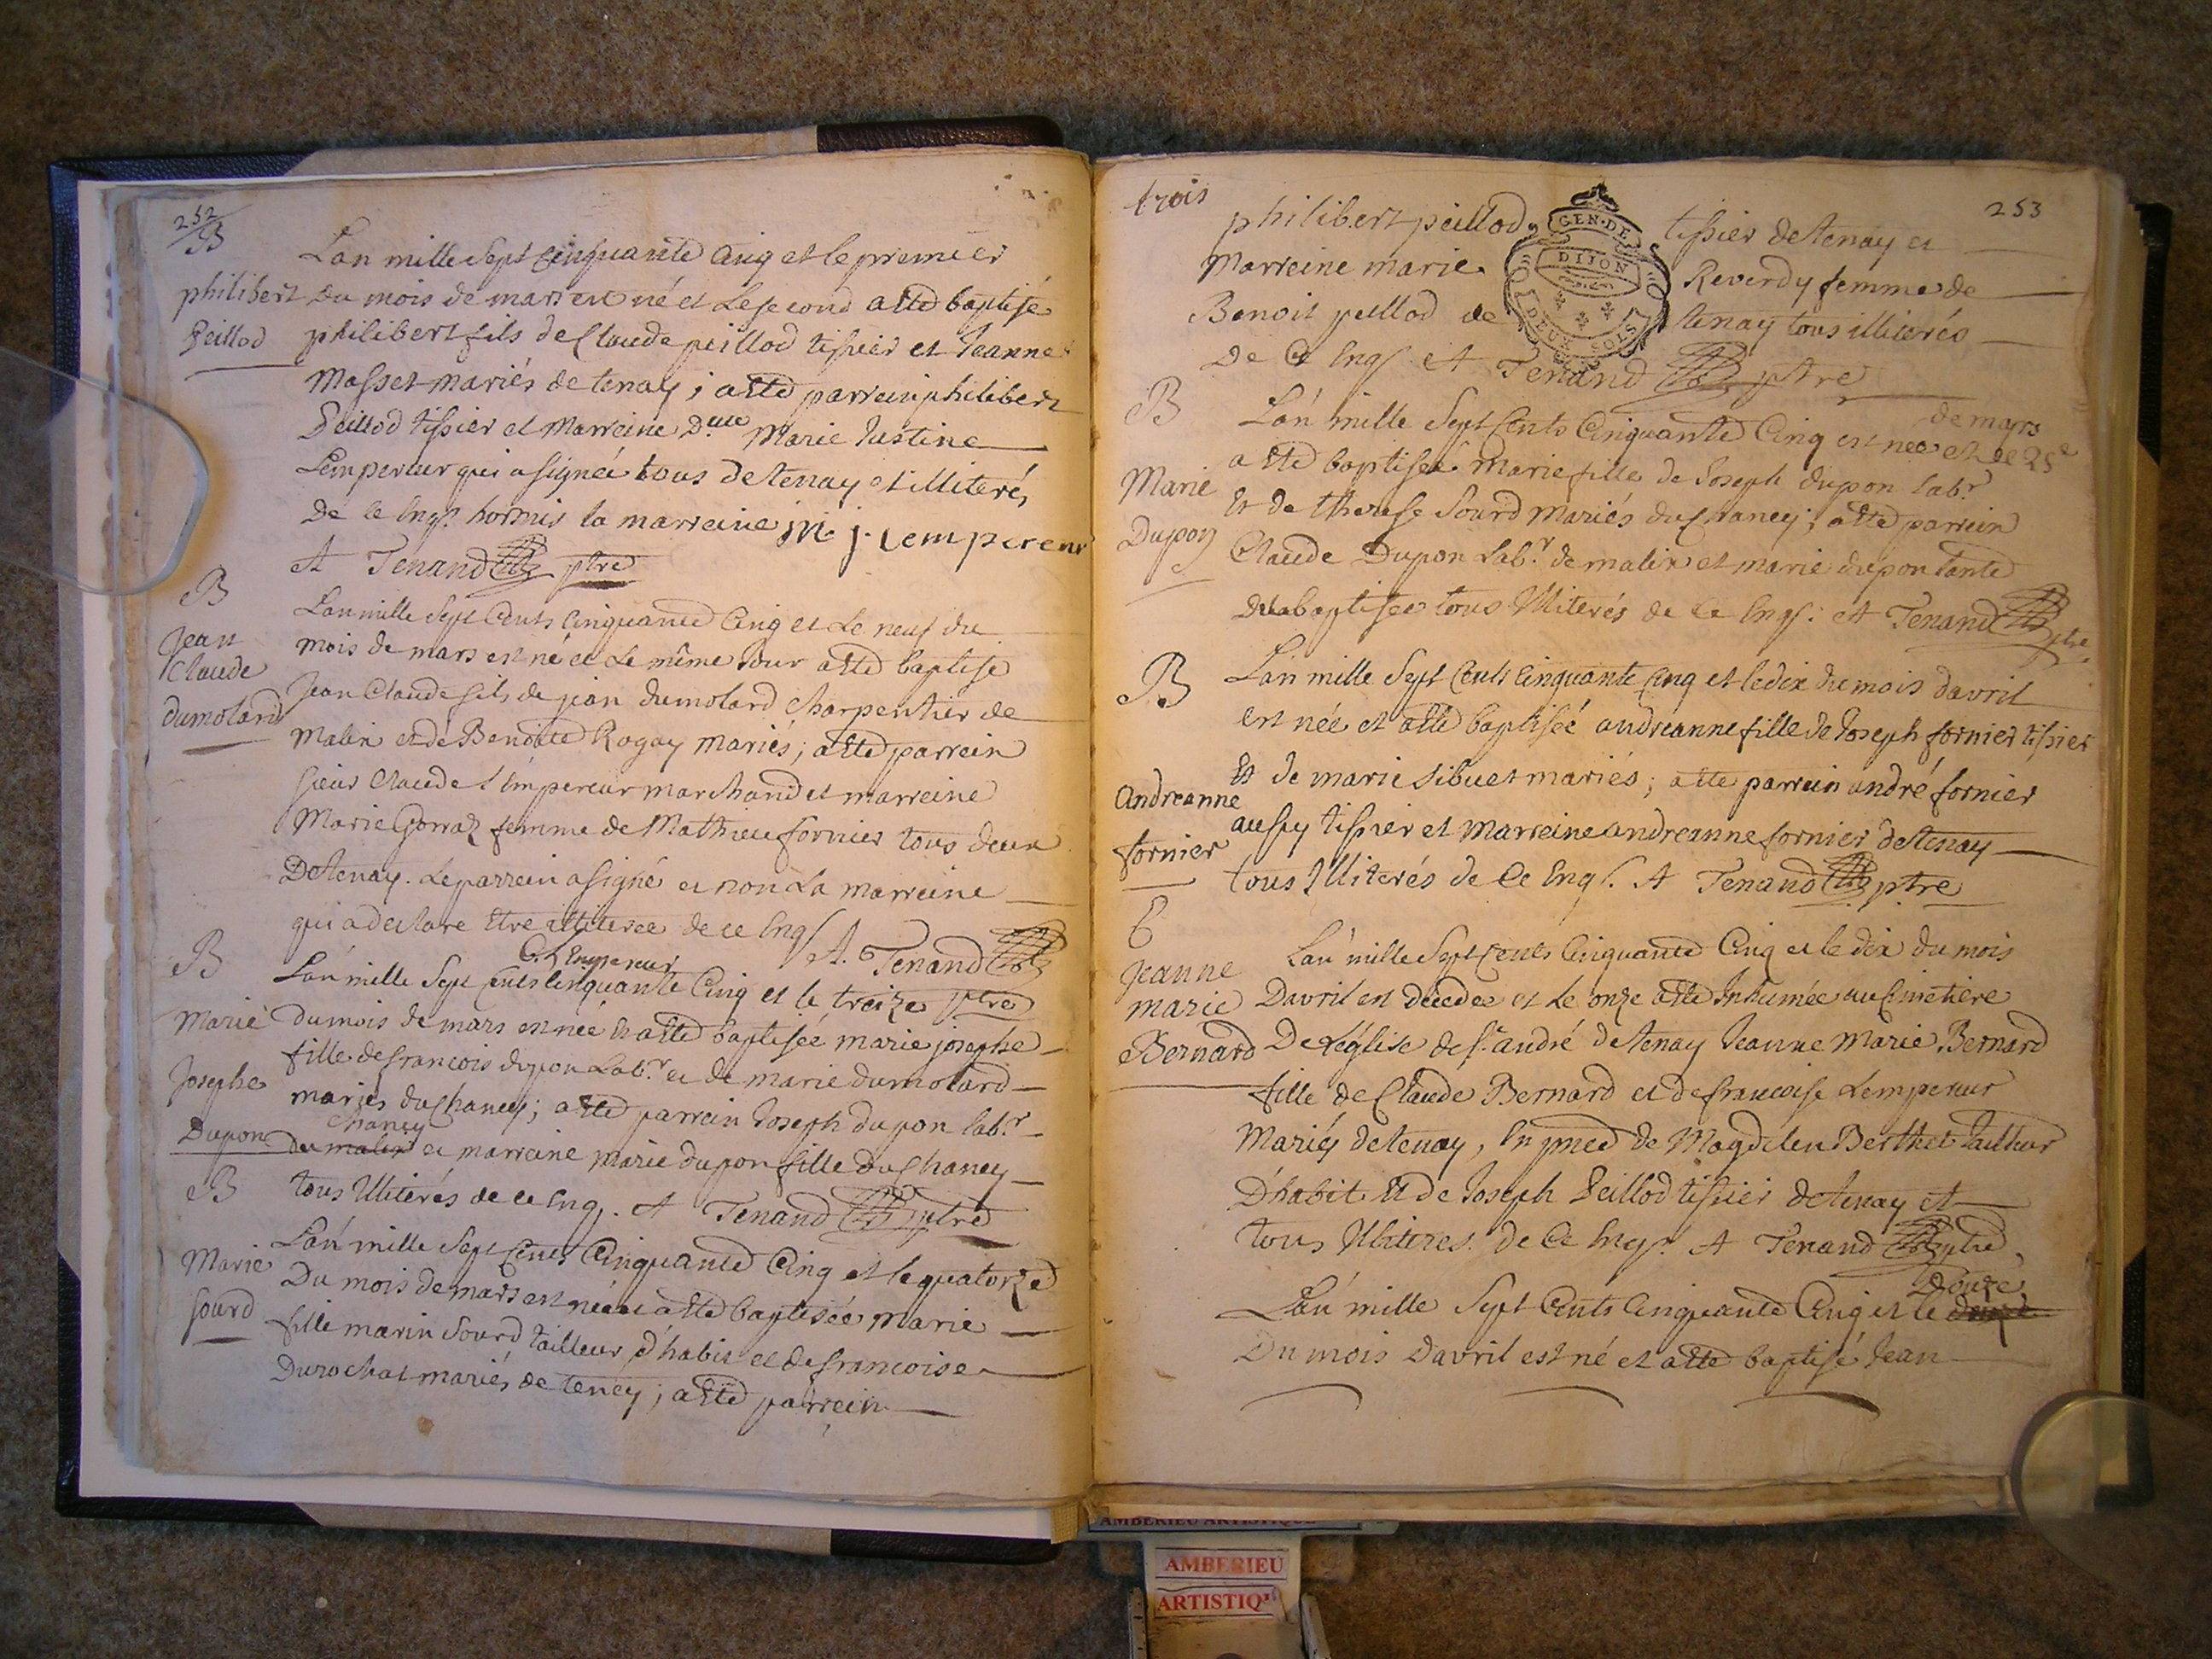 252
B
Lan mille Sept Cinquante Cinq et le premier
philibert
du mois de mars est né et Le second a eté baptisé
Peillod
philibert fils de Claude peillod tissier et Jeanne
Masset mariés de tenay; a eté parrein philibert
Peillod tissier et Marreine Dlle Marie Justine
Lempereur qui a signée tous de tenay et illiterés
de ce Enqs. hormis la marreine M. j. Lempereur
et Tenand ptre
B
Jean
Claude
dumolard
L'an mille Sept Cents Cinquante Cinq et Le neuf du
mois de mars est né et Le même Jour a eté baptisé
Jean Claude fils de jean dumolard Charpentier de
Malix et de Benoite Rogay mariés; a eté parrein
sieur Claude L'émpereur marchand et marreine
Marie Gorraz femme de Mathieu fornier tous deux
De tenay. Le parrein a signé et non La marreine
qui a declaré Etre illiterée de ce Enqs A. Tenand
C. L'Empereur
ptre
B
Marie
Josephe
Dupon
L'an mille Sept Cents Cinquante Cinq et le treize
du mois de mars est née Et a eté baptisée marie josephe
fille de francois dupon Labr. et de marie dumolard
mariés du Chaney; a eté parrein Joseph dupon labr.
Chaney
du malix et marreine marie dupon fille du Chaney
tous Illiterés de ce Enq. A Tenand ptre
B
Marie
Sourd
L'an mille Sept Cents Cinquante Cinq et le quatorze
Du mois de mars est née et a eté baptisée Marie
fille marin Sourd tailleur d'habit et de francoise
Durochat mariés de teney; a eté parrein
trois
253
philibert peillod, tissier de tenay et
Marreine marie Reverdy femme de
Benoit peillod de tenay tous illiterés
De Ce Enqs et Tenand ptre
GEN. DE
DIJON
DEUX SOLS
B
Marie
Dupon
de mars
L'an mille Sept Cents Cinquante Cinq est née et le 25e
a eté baptisée Marie fille de Joseph dupon labr.
Et de therese Sourd Mariés du Chaney; a eté parrein
Claude Dupon Labr. de malix et marie dupon tante
de la baptisée tous Illiterés de Ce Enqs: et Tenand
ptre
B
Andreanne
fornier
L'an mille Sept Cents Cinquante Cinq et le dix du mois davril
est née et a eté baptisée andréanne fille de Joseph fornier tissier
Et de marie Sibuet mariés; a eté parrein andré fornier
aussy tissier et Marreine andreanne fornier de tenay
tous Illiterés de Ce Enqs. A Tenand ptre
E
Jeanne
marie
Bernard
L'an mille Sept Cents Cinquante Cinq et le dix du mois
Davril est décedée et Le onze a eté Inhumée au Cimetiere
De Léglise de St. andré de tenay Jeanne Marie Bernard
fille de Claude Bernard et de francoise Lempereur
Mariés de tenay, En pnce de Magdelen Berthet tailleur
D'habit Et de Joseph Peillod tissier de tenay et
tous Illiteres. de Ce Enqs. A Tenand ptre
Douze
L'an mille Sept Cents Cinquante Cinq et le
Du mois Davril est né et a eté baptisé Jean
AMBERIEU ARTISTIQUE
AMBERIEU
ARTISTIQ